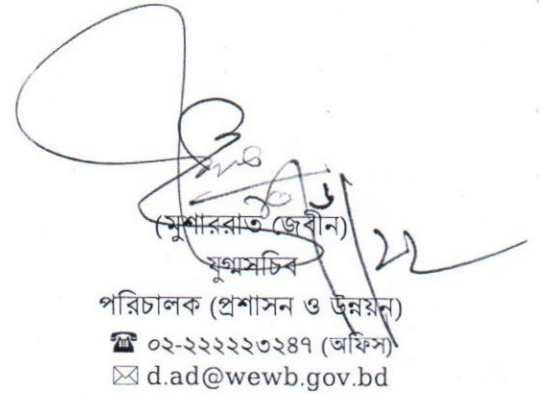 (মুশাররাত জেবীন)
যুগ্মসচিব
পরিচালক (প্রশাসন ও উন্নয়ন)
☎ ০২-২২২২২৩২৪৭ (অফিস)
✉ d.ad@wewb.gov.bd